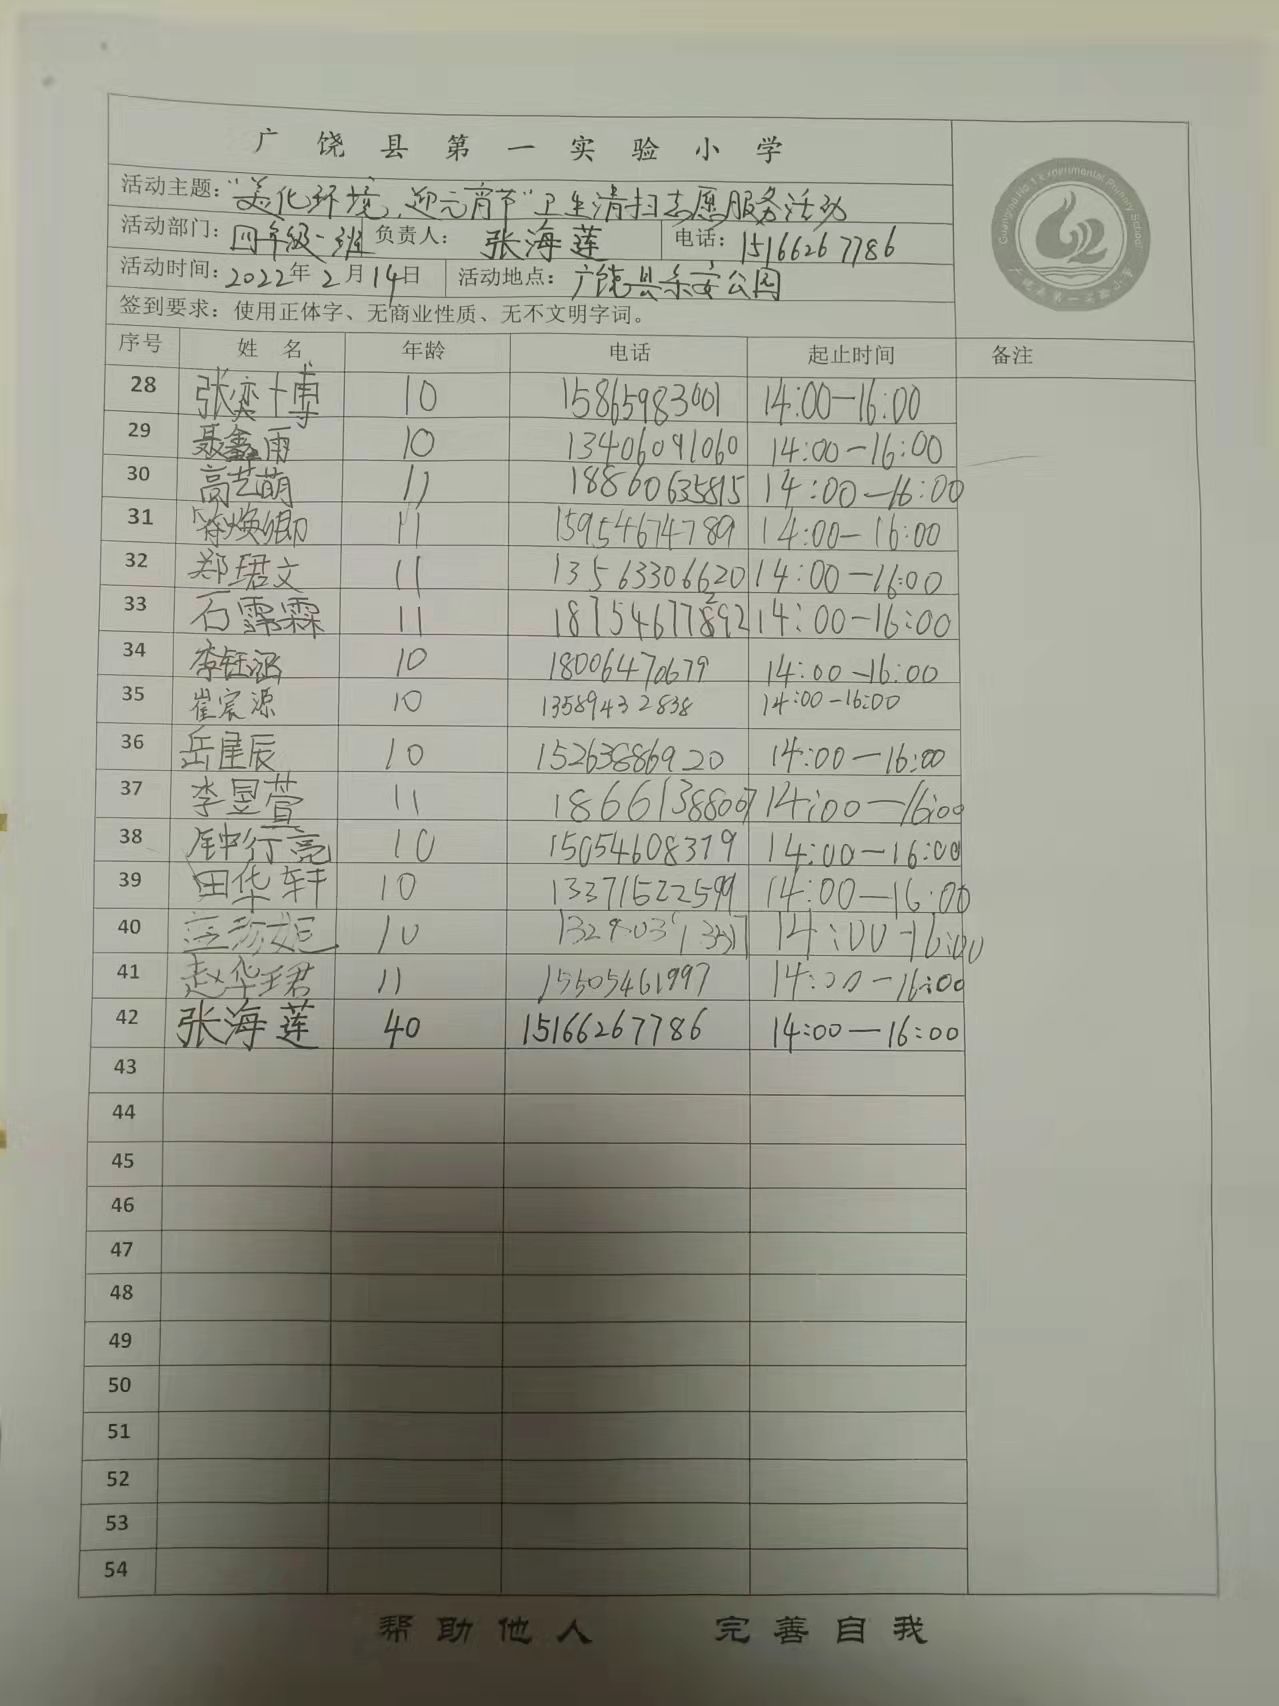 广饶县第一实验小学
Guangrao No.1 Experimental Primary School
广饶县第一实验小学
活动主题："美化环境,迎元宵节"卫生清扫志愿服务活动
活动部门：四年级一班 负责人：张海莲 电话：15166267786
活动时间：2022年2月14日 活动地点：广饶县乐安公园
签到要求：使用正体字、无商业性质、无不文明字词。
序号 姓名 年龄 电话 起止时间 备注
28 张奕博 10 15865983001 14:00—16:00
29 聂鑫雨 10 13406091060 14:00—16:00
30 高艺萌 11 18860635815 14:00—16:00
31 焕卿 11 15954674789 14:00—16:00
32 郑珺文 11 13563306620 14:00—16:00
33 石霈霖 11 14:00—16:00
34 李钰涵 10 18006470679 14:00—16:00
35 崔宸源 10 13589432838 14:00—16:00
36 岳星辰 10 15263886920 14:00—16:00
37 李昱萱 11 18661388007 14:00—16:00
38 钟行亮 10 15054608379 14:00—16:00
39 田华轩 10 13371522599 14:00—16:00
40 10 14:00-16:00
41 赵华珺 11 15505461997 14:00—16:00
42 张海莲 40 15166267786 14:00—16:00
43
44
45
46
47
48
49
50
51
52
53
54
帮助他人 完善自我